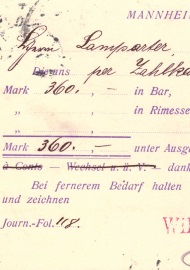 MANNHEIM
Herrn Lamparter
Die uns per Zahlka
Mark 360. „ — in Bar,
„ „ — in Rimesse
„ „ —
Mark 360. „ — unter Ausge
à Conto — Wechsel u. ü. V. — dank
Bei fernerem Bedarf halten
und zeichnen
Journ.-Fol. 118.